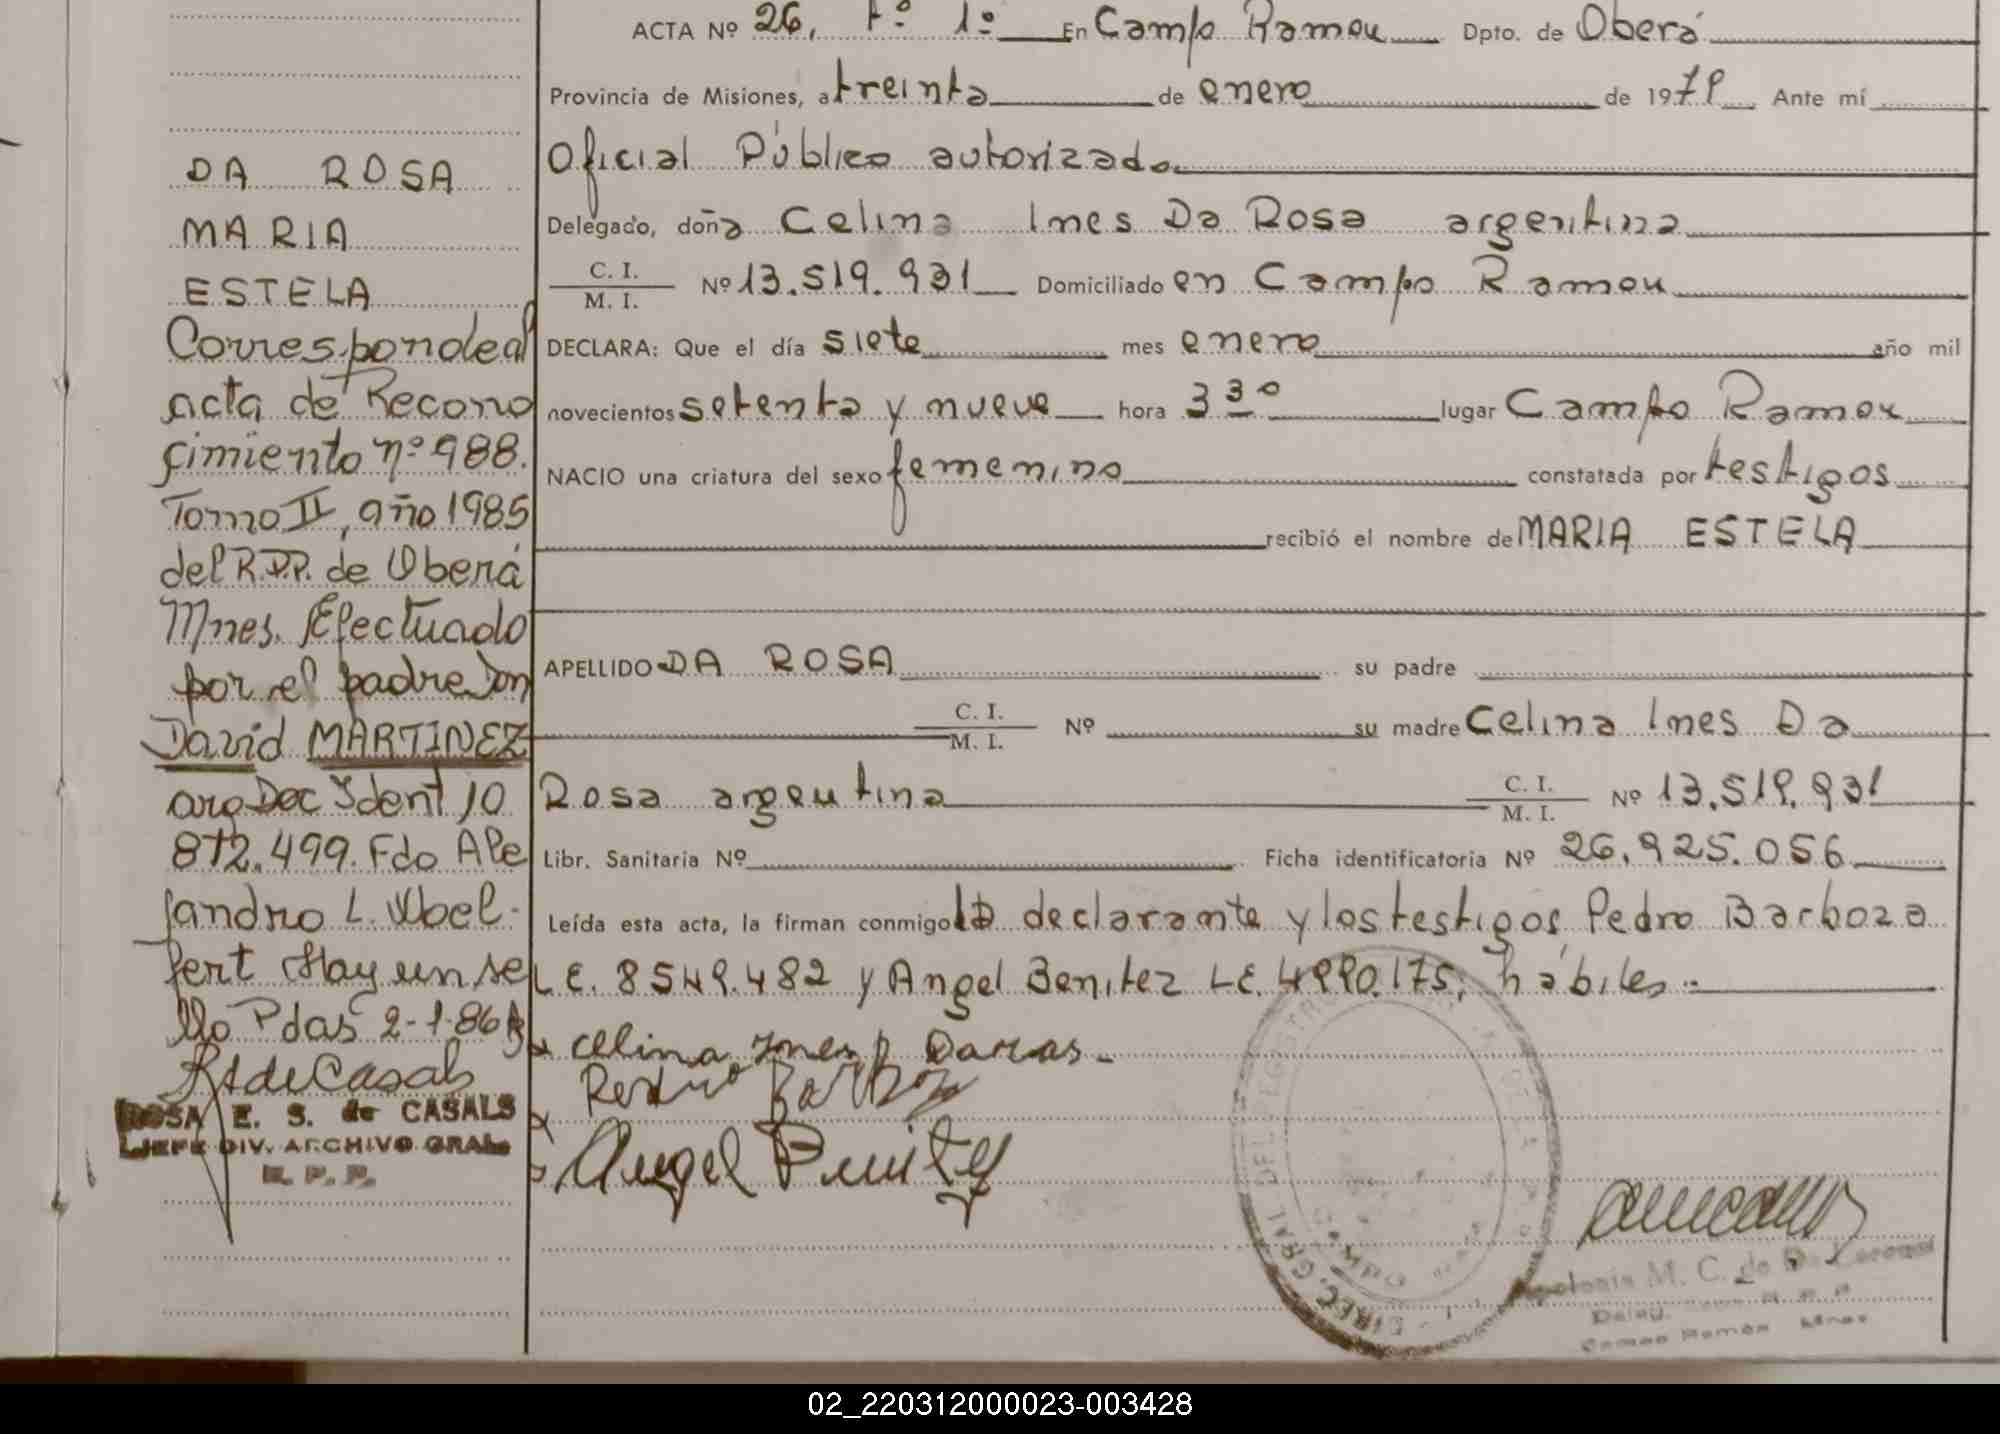 ACTA Nº 26, tº 1º En Campo Ramou Dpto. de Oberá
Provincia de Misiones, a treinta de enero de 1979 Ante mí
Oficial Público autorizado
Delegado, doña Celina Ines Da Rosa argentina
C. I.
M. I. Nº 13.519.931 Domiciliado en Campo Ramou
DECLARA: Que el día siete mes enero año mil
novecientos setenta y nueve hora 3 30 lugar Campo Ramou
NACIO una criatura del sexo femenino constatada por testigos
recibió el nombre de MARIA ESTELA
APELLIDO DA ROSA su padre
C. I.
M. I. Nº su madre Celina Ines Da
Rosa argentina C. I.
M. I. Nº 13.519.931
Libr. Sanitaria Nº Ficha identificatoria Nº 26.925.056
Leída esta acta, la firman conmigo la declarante y los testigos Pedro Barboza
L.E. 8549.482 y Angel Benitez L.E. 4990.175, hábiles.-
Celina Ines
Pedro Barboza
Angel Benitez
DA ROSA
MARIA
ESTELA
Corresponde al
acta de Recono
cimiento nº 988.
Tomo II, año 1985
del R.D.P. de Oberá
Mnes. Efectuado
por el padre Don
David MARTINEZ
arg Doc Ident 10
872.499. Fdo Ale
jandro L. Woel-
fert Hay un se
llo Pdas 2-1-86
RS de Casals
ROSA E. S. de CASALS
JEFE DIV. ARCHIVO GRAL.
R. P. P.
DIREC. GRAL DEL REGISTRO
M. C. de
Deleg.
Campo Ramón Mnes
02_220312000023-003428